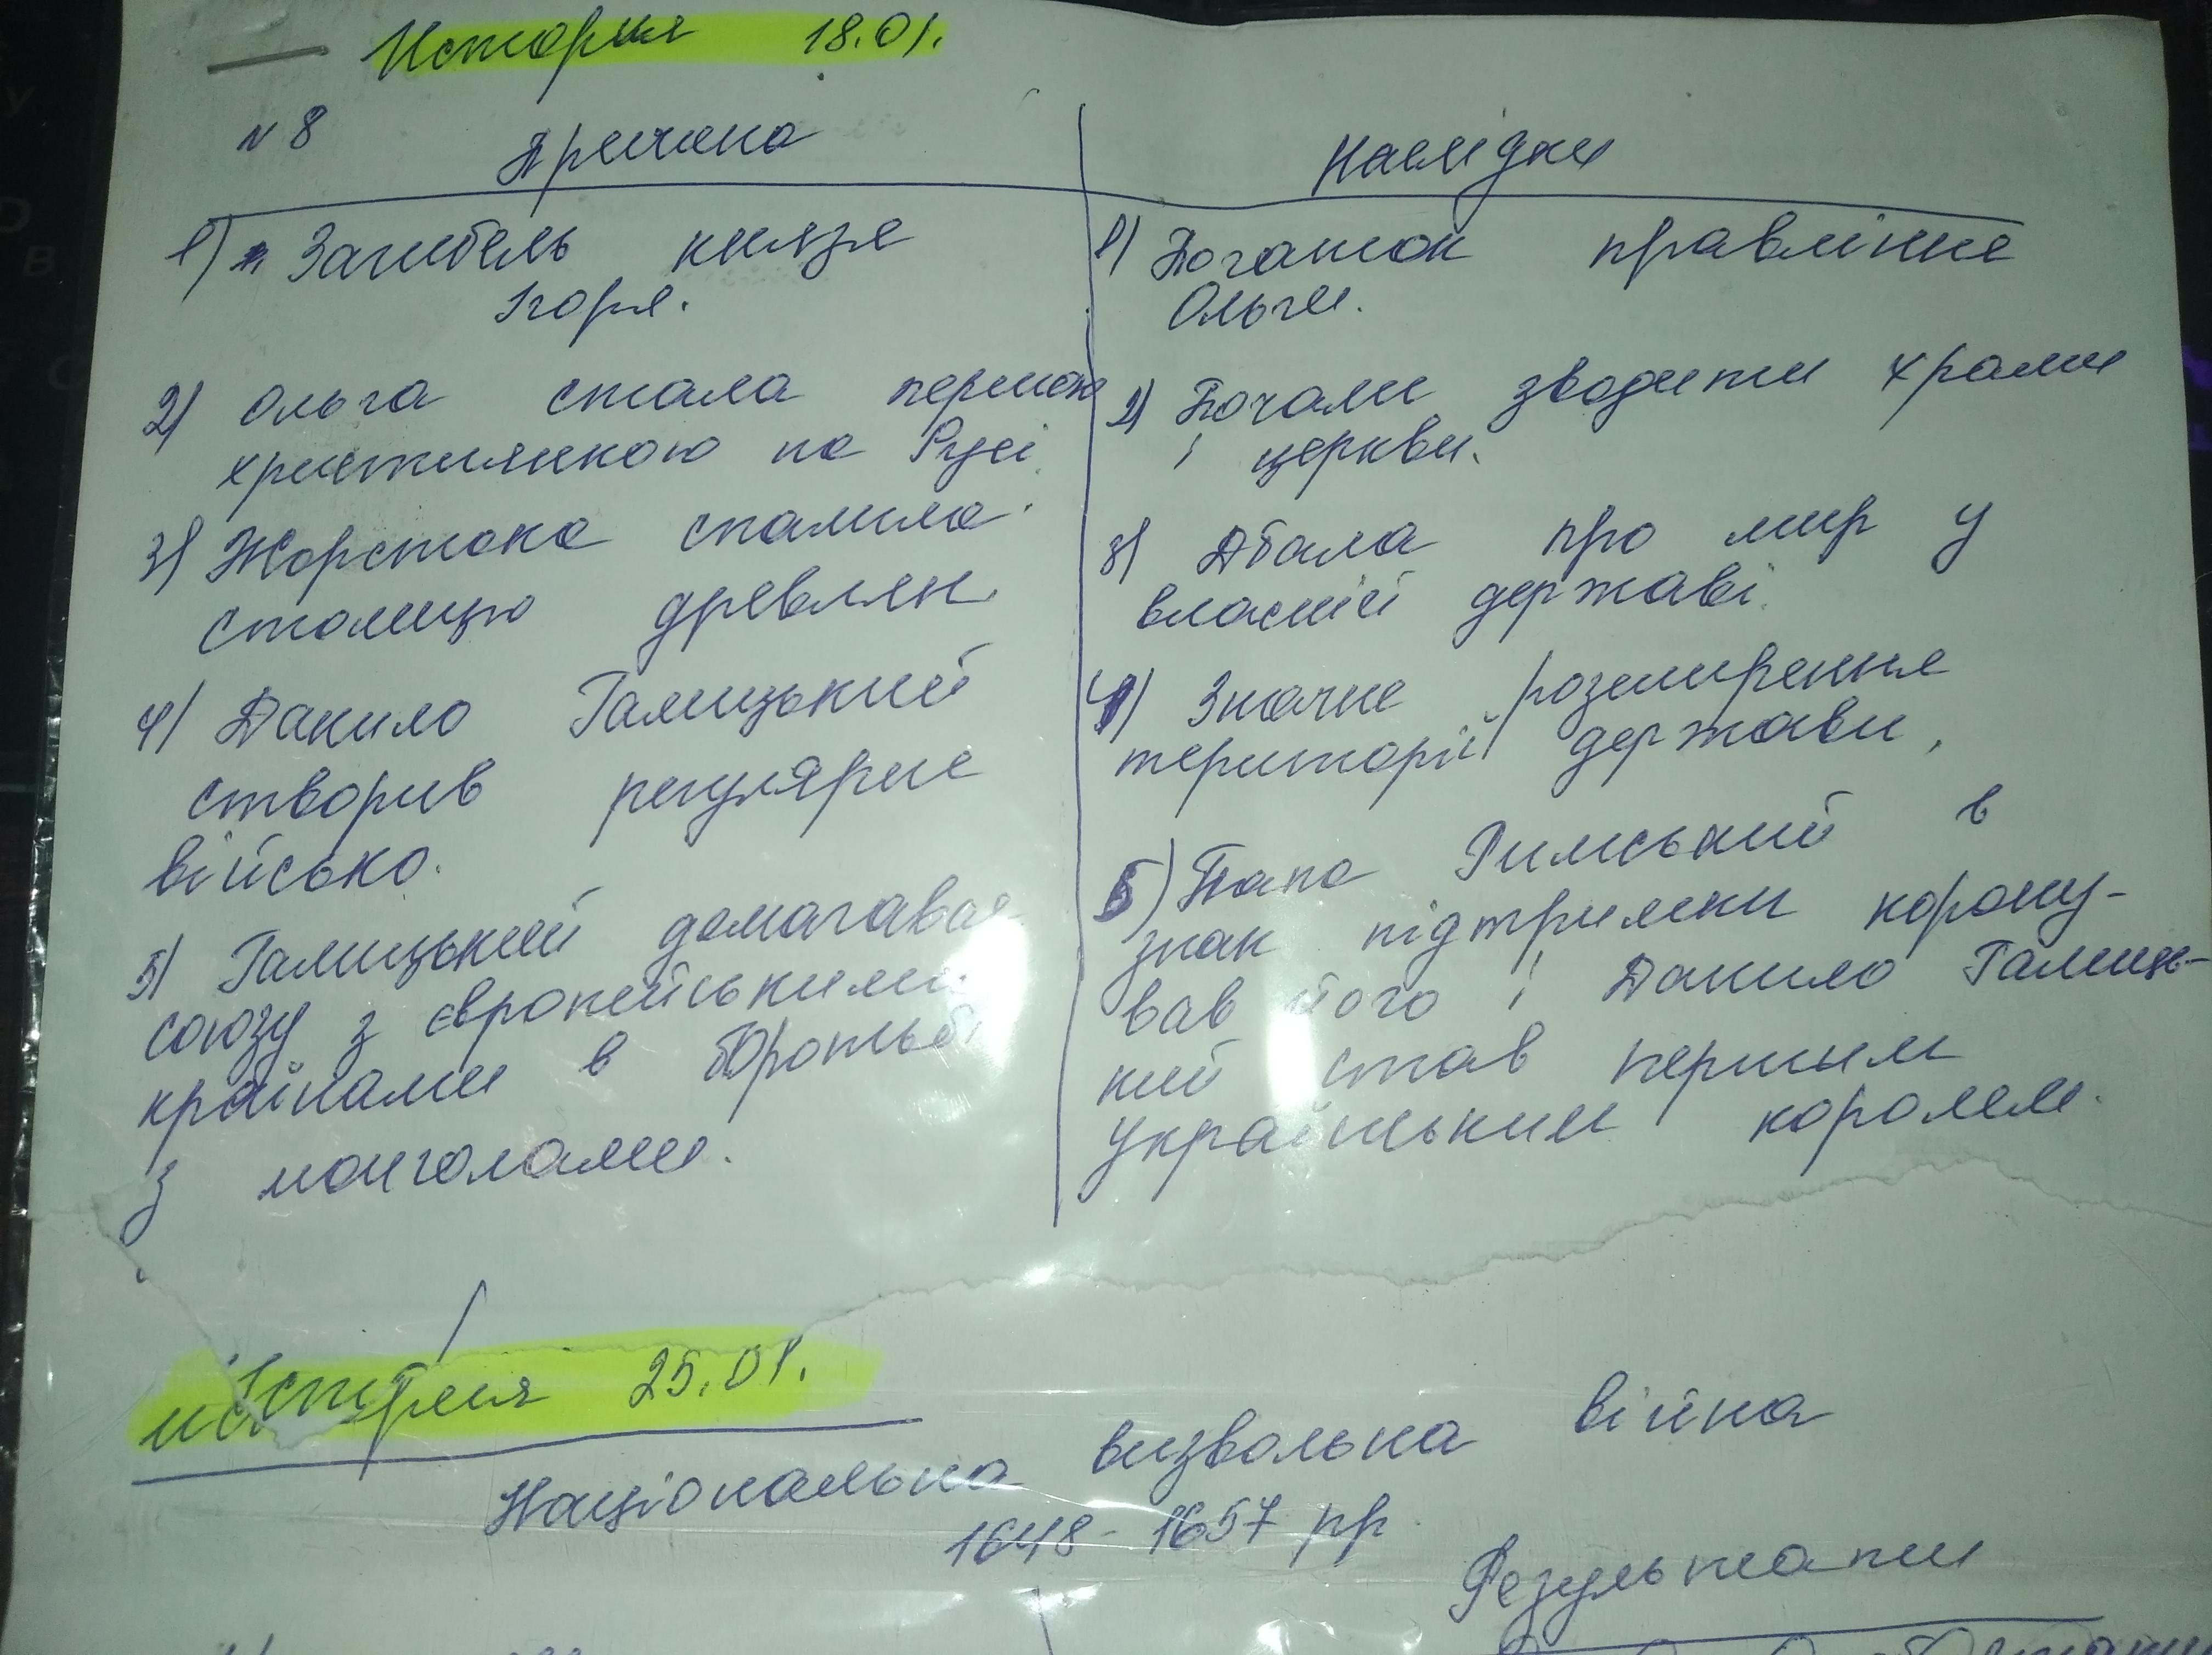 История 18.01.
№8 Причина
Наслідки
1) Загибель князя
Ігоря.
2) Ольга стала першою
християнкою на Русі.
3) Жорстоко спалила
столицю древлян.
4) Данило Галицький
створив регулярне
військо.
5) Галицький домагався
союзу з європейськими
країнами в боротьбі
з монголами.
1) Початок правління
Ольги.
2) Почали зводити храми
і церкви.
3) Дбала про мир у
власній державі.
4) Значне розширення
території держави,
5) Папа Римський в
знак підтримки корону-
вав його і Данило Галиць-
кий став першим
українським королем.
История 25.01.
Національна визвольна війна
1648-1657 рр.
Результати